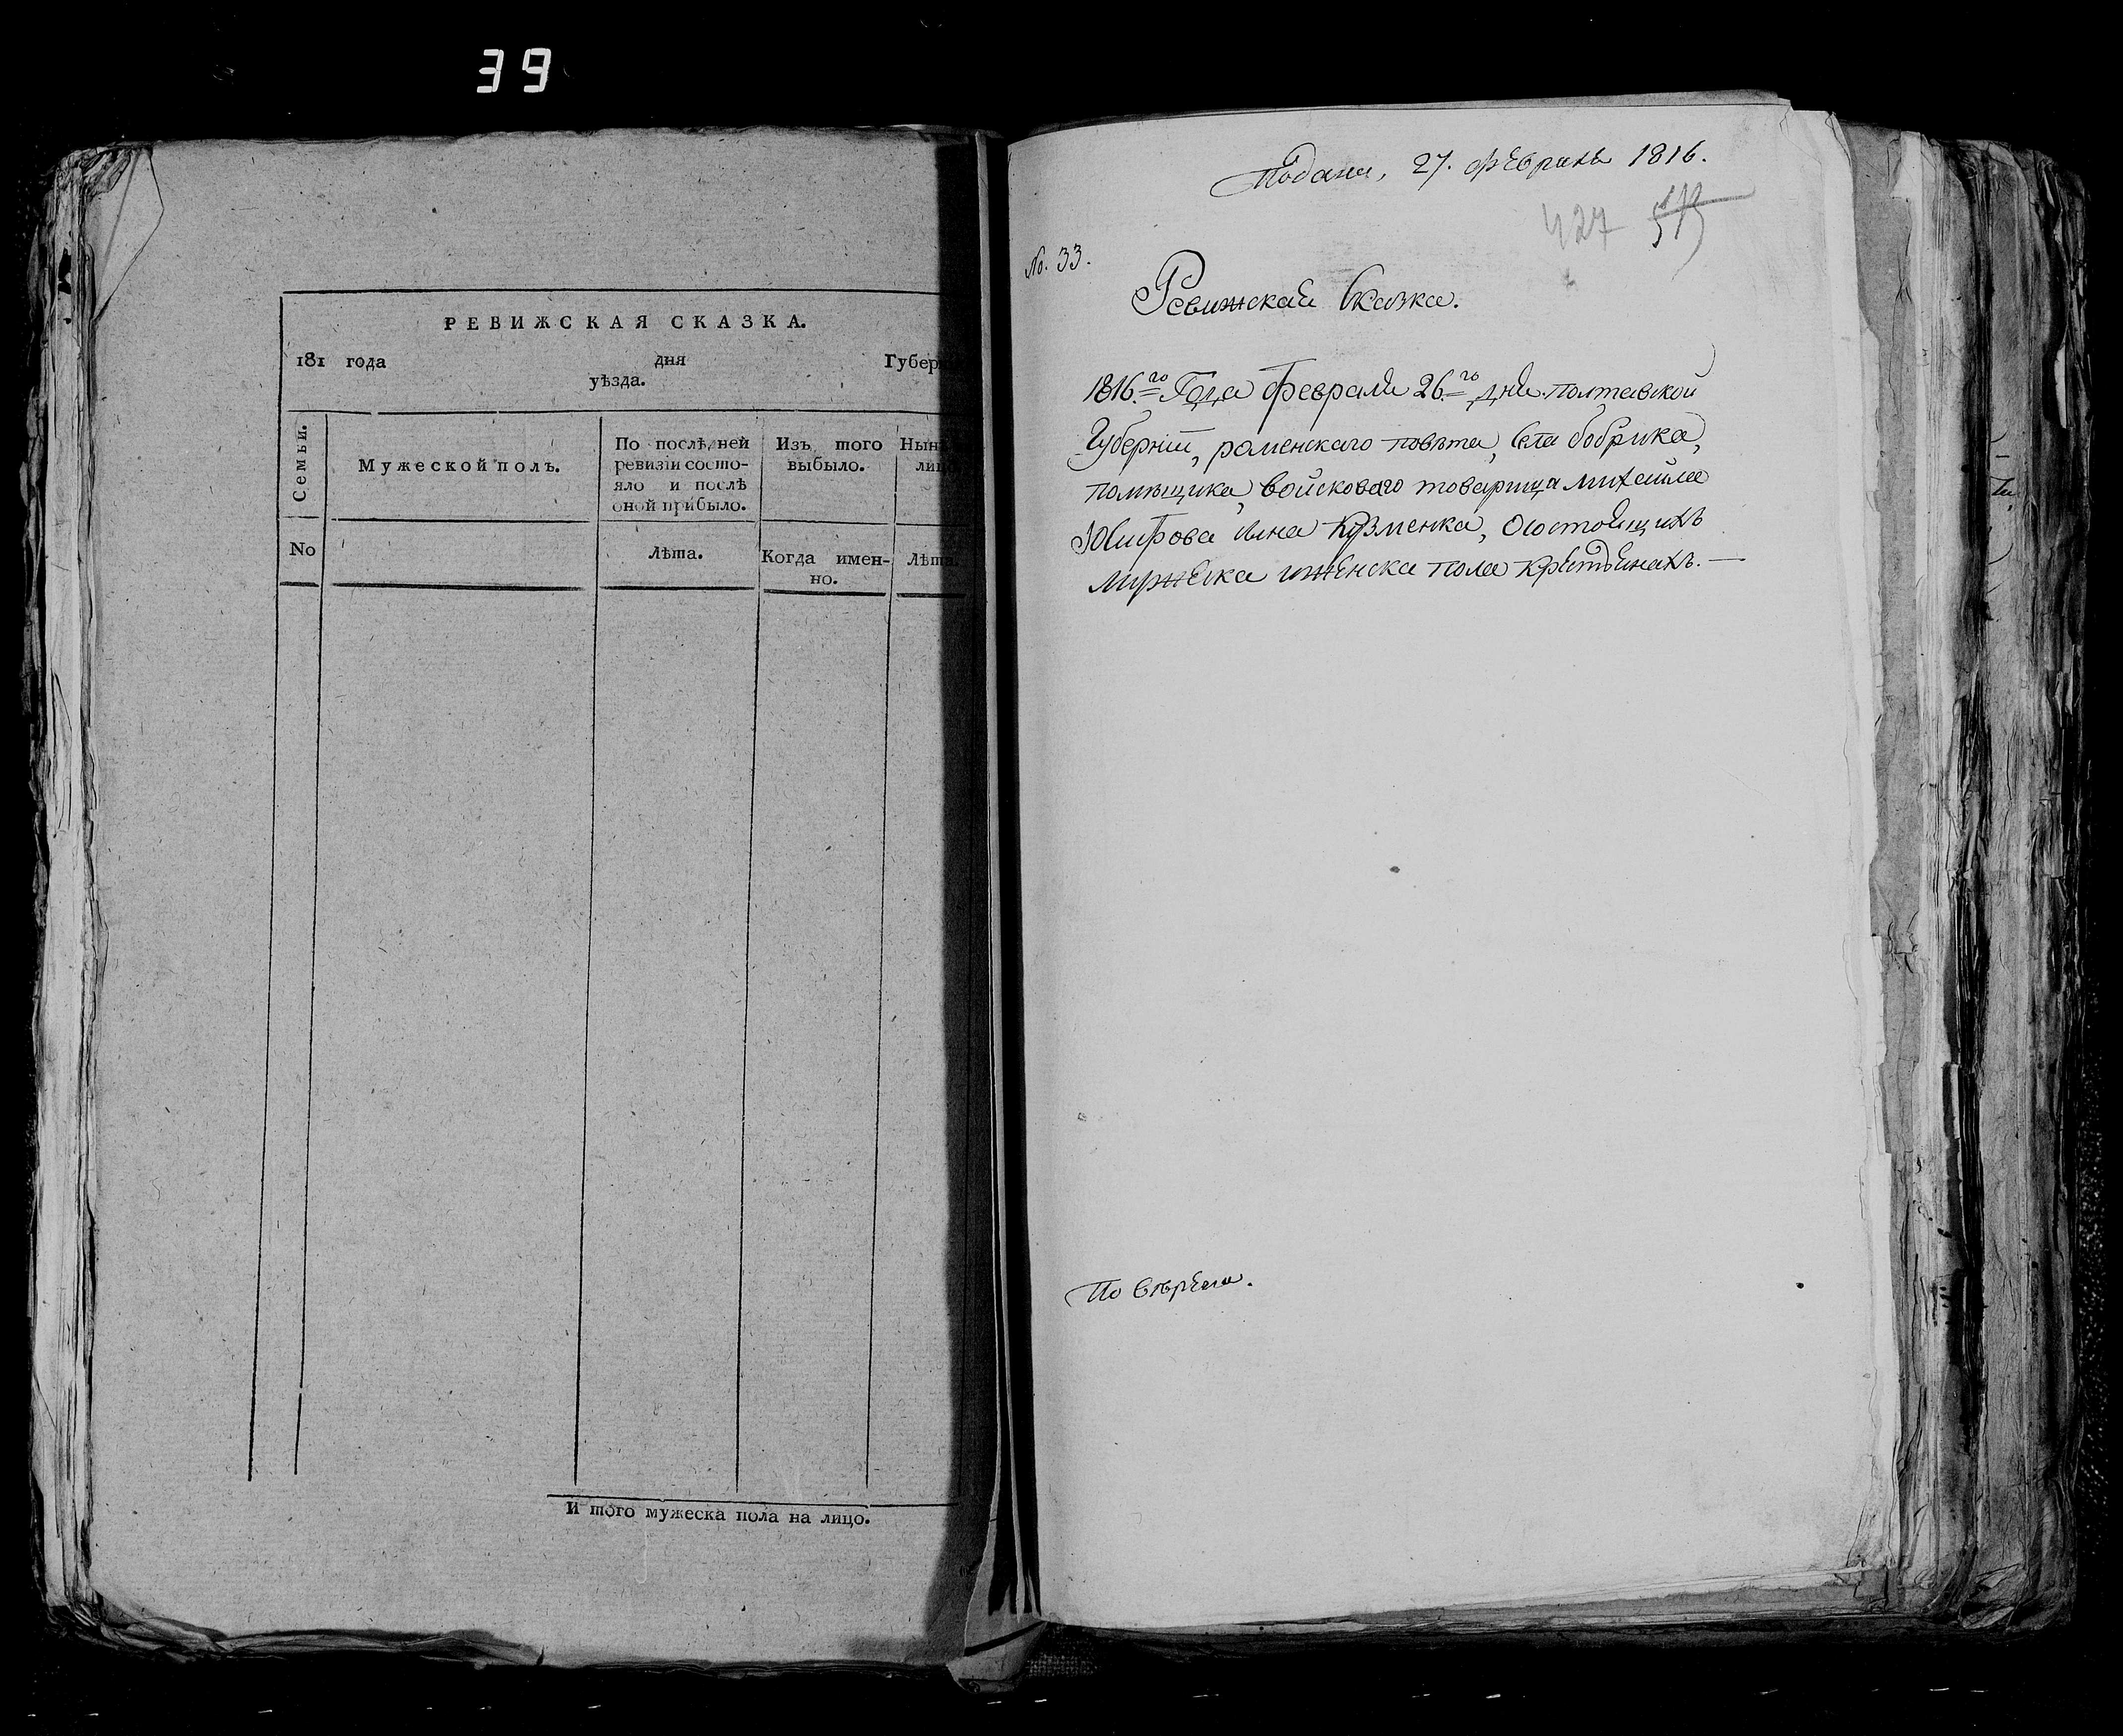 39
РЕВИЖСКАЯ СКАЗКА.
181 года дня Губерн
уѣзда.
Семьи.
Мужеской полъ.
По послѣдней
ревизіи состо-
яло и послѣ
оной прибыло.
Изъ того
выбыло.
Нын
лиц
No
Лѣта.
Когда имен-
но.
Лѣта.
И того мужеска пола на лицо.
Подана, 27. февраля 1816.
427
No. 33.
Ревижская Сказка.
1816.го Года февраля 26.го дня полтавской
Губерніи, роменскаго повѣта, села бобрика,
помѣщика, войскового товарища михайла
сына кузменка, Осостоящихъ
мужеска иженска пола крестьянахъ. —
По вѣрена.